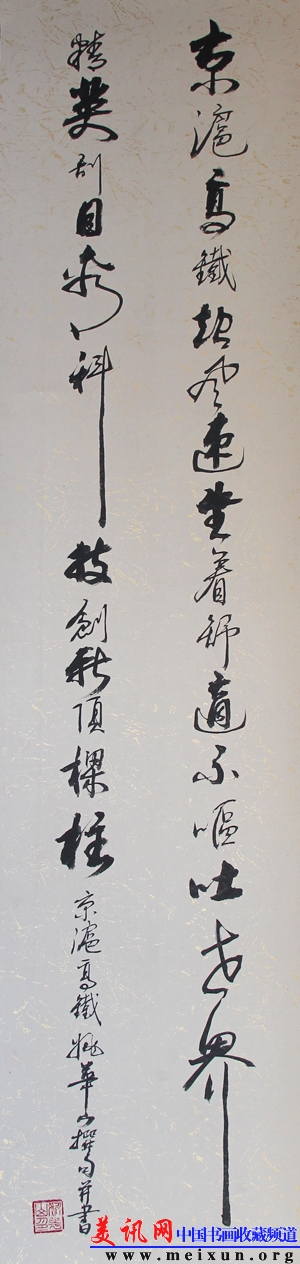 京滬高鐵超風速坐着舒適不嘔吐世界
精英刮目看科技創新頂樑柱
京滬高鐵姚華山撰句并書
美讯网 中国书画收藏频道
www.meixun.org